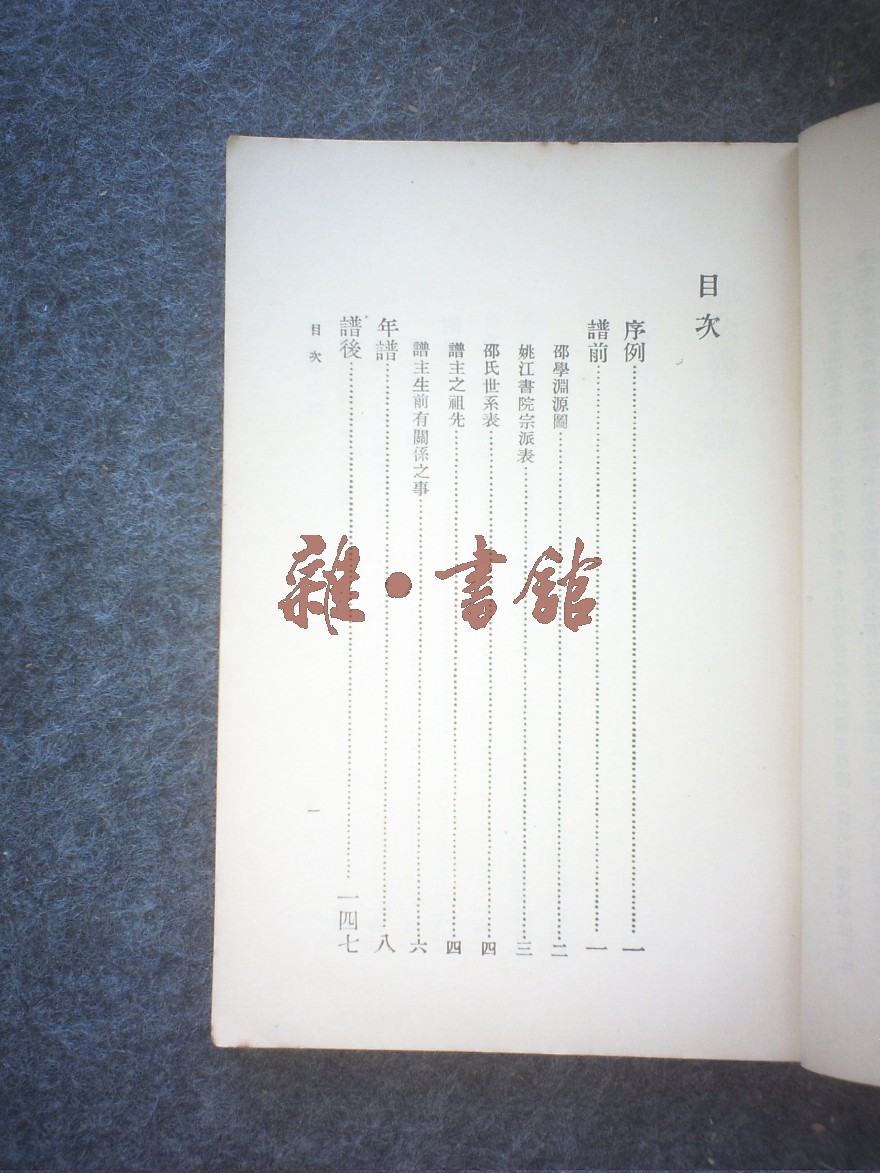 目次
序例……一
譜前……一
邵學淵源圖……二
姚江書院宗派表……三
邵氏世系表……四
譜主之祖先……四
譜主生前有關係之事……六
年譜……八
譜後……一四七
目次
一
雜·書館